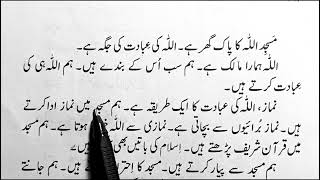 مسجد اللہ کا پاک گھر ہے۔ اللہ کی عبادت کی جگہ ہے۔
اللہ ہمارا مالک ہے۔ ہم سب اُس کے بندے ہیں۔ ہم اللہ ہی کی
عبادت کرتے ہیں۔
نماز، اللہ کی عبادت کا ایک طریقہ ہے۔ ہم مسجد میں نماز ادا کرتے
ہیں۔ نماز بُرائیوں سے بچاتی ہے۔ نمازی سے اللہ ہوتا ہے۔ ہم مسجد
میں قرآن شریف پڑھتے ہیں۔ اِسلام کی باتیں بھی
ہم مسجد سے پیار کرتے ہیں۔ مسجد کا ہیں۔ ہم جانتے